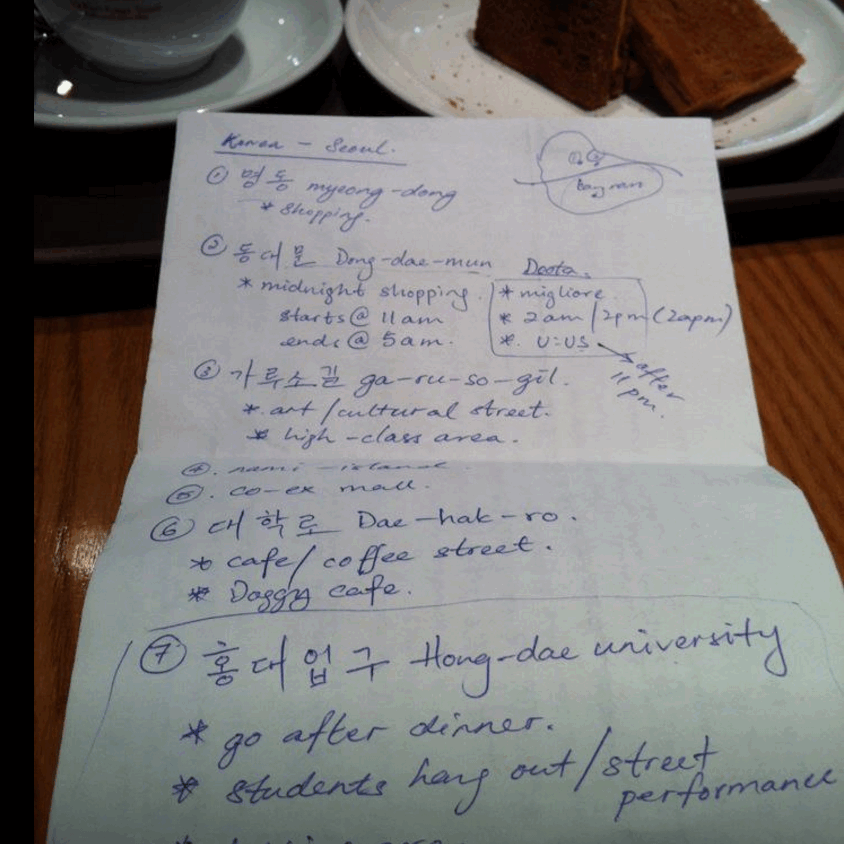 Korea - Seoul.
① 명동 myeong-dong
* shopping.
② 동대문 Dong-dae-mun
* midnight shopping.
starts @ 11am
ends @ 5am.
Doota.
* migliore
* 2am/2pm (2apm)
* U:US
after
11pm.
③ 가루소길 ga-ru-so-gil.
* art/cultural street.
* high-class area.
④. nami-island
⑤. co-ex mall.
⑥ 대학로 Dae-hak-ro.
* cafe/coffee street.
* Doggy cafe.
⑦ 홍대업구 Hong-dae university
* go after dinner.
* students hang out/street
performance